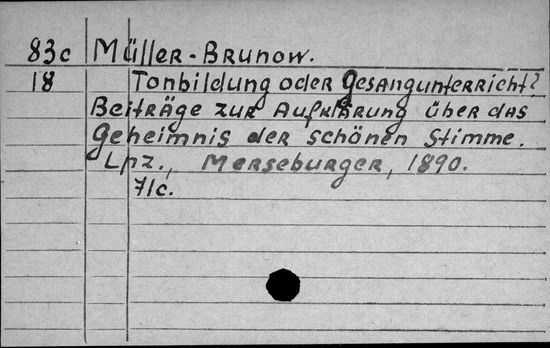 83c Müller-Brunow.
18 Tonbildung oder Gesangunterricht?
Beiträge zur Aufklärung über das
Geheimnis der schönen Stimme.
Lpz., Merseburger, 1890.
71c.